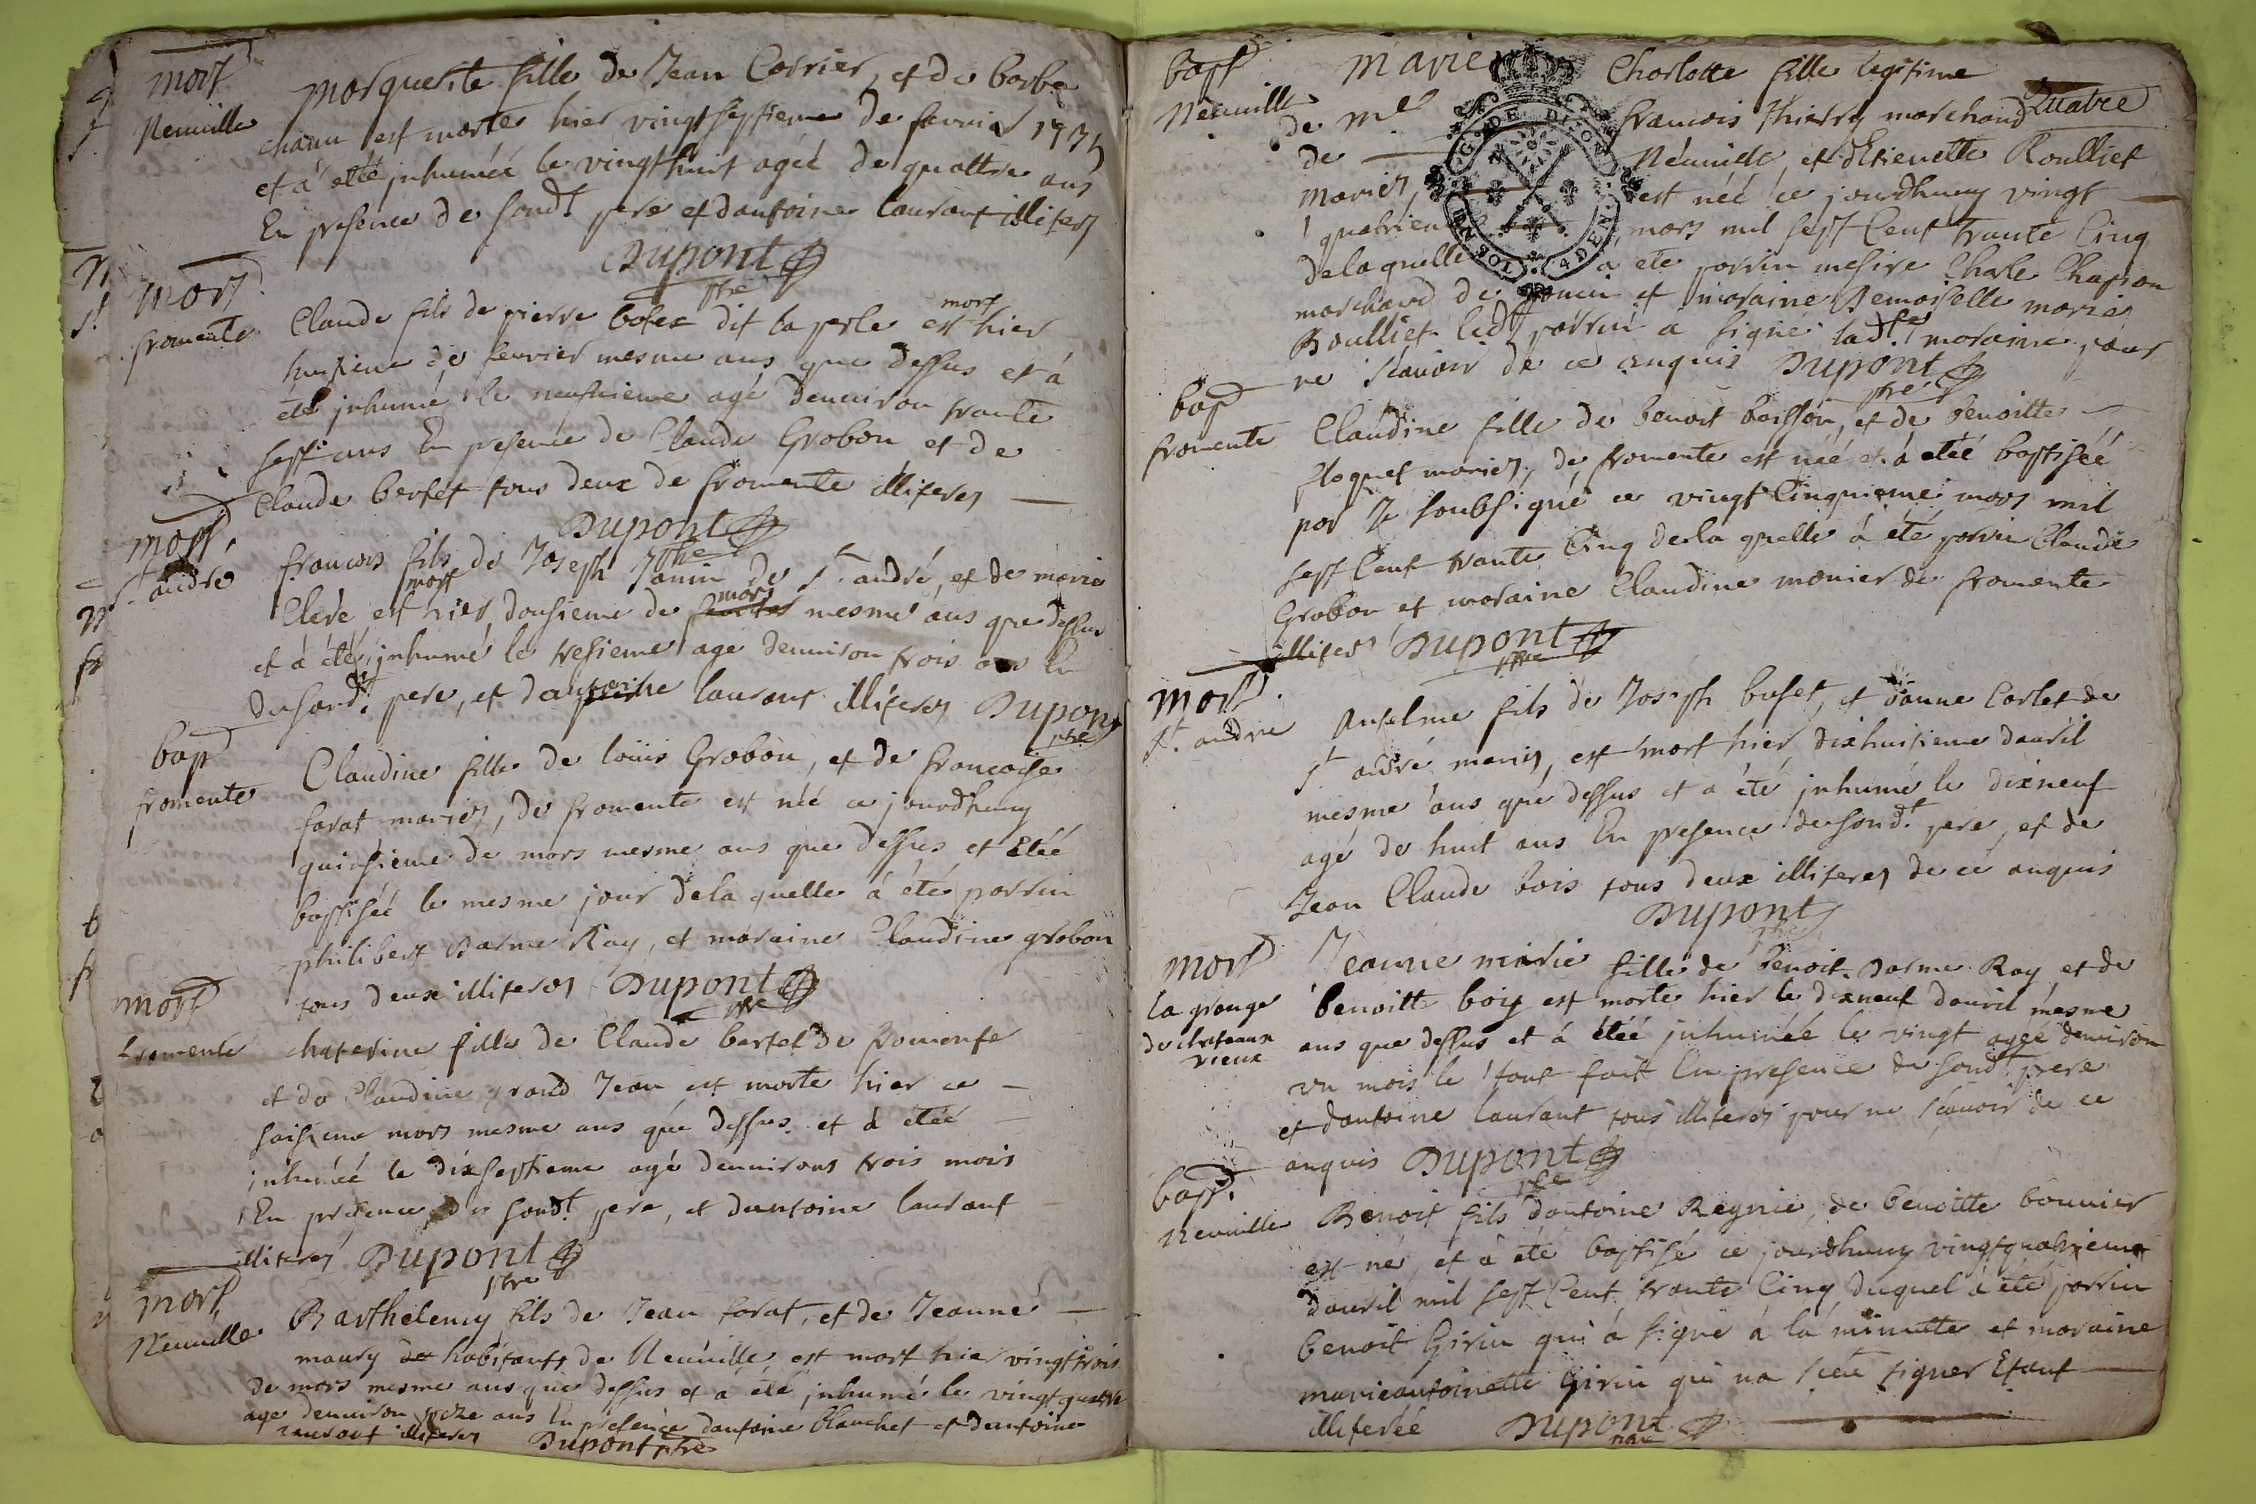 mort
Neuville
Marguerite fille de Jean Corrier, et de barbe
est morte hier vingt septieme de fevrier 1735
et a été inhumée le vingt huit agée de quattre ans
En presence de sond.t pere et dantoine laurant illiteres
Dupont
ptre
mort
fromente
Claude fils de pierre bofet dit la perle est mort hier
huitieme de fevrier mesme ans que dessus et à
été inhumé le neufvieme agé denuiron trante
sept ans En presence de Claude Grobon et de
Claude bertet tous deux de fromente illiteres
Dupont
ptre
mort
St. andré
francois fils de Joseph Janin de St. andré, et de marie
Clere est mort hier dousieme de mars mesme ans que dessus
et a été inhumé le tresieme agé denuiron trois ans En
de sond.t pere, et dantoine laurant illiteres Dupont
ptre
bap
fromente
Claudine fille de louis Grobon, et de francoise
forat mariés, de fromente est née ce jourdhuy
quinsieme de mars mesme ans que dessus et étéé
baptisée le mesme jour de la quelle à été parrin
philibert Darme Ray, et maraine Claudine grobon
tous deux illiteres Dupont
ptre
mort
fromente
chaterine fille de Claude bertet de fromente
et de Claudine grand Jean est morte hier ce
saisieme mars mesme ans que dessus et à étéé
inhumée le dixseptieme agé denuirons trois mois
En presence de sond.t pere, et dantoine laurant
illiteres Dupont
ptre
mort
Neuville
Barthelemy fils de Jean forat, et de Jeanne
maury habitants de Neuville est mort hier vingt trois
de mars mesme ans que dessus et a été inhumé le vingt quatre
age denuiron ans En presence dantoine blanchet et dantoine
laurant illiteres Dupont ptre
Quatre
bapt
Neuville
Marie Charlotte fille legitime
de M.e francois Thierry marchand
de Neuville et dEtienette Roulliet
mariés, est néé ce jourdhuy vingt
quatrieme mars mil sept Cent trante Cinq
de la quelle a été parrin messire Charle Chapron
marchand de et maraine Demoiselle marie
Roulliet led.t parrin a signé lad.te maraine pour
ne scavoir de ce enquis Dupont
ptre
G. DE DIJON
4 DEN
bap
fromente
Claudine fille de benoit boisson, et de benoitte
ploquet mariés, de fromente est néé et à étéé baptiséé
par Je soubsigné ce vingt Cinquieme mars mil
sept Cent trante Cinq de la quelle à été parrin Claude
Grobon et maraine Claudine monier de fromente
illiteres Dupont
ptre
mort
St. andre
Anselme fils de Joseph bufet, et danne Corlet de
St andré mariés, est mort hier dixhuitieme dauril
mesme ans que dessus et a été inhumé le dixneuf
agé de huit ans En presence de sond.t pere, et de
Jean Claude bois tous deux illiteres de ce anquis
Dupont
ptre
mort
la grange
de chateaux
vieux
Jeanne marie fille de benoit Darme Ray et de
benoitte boiy est morte hier le dixneuf dauril mesme
ans que dessus et à étéé inhumée le vingt agee denuiron
un mois le tout fait En presence de sond.t pere
et dantoine laurant tous illiteres pour ne scauoir de ce
anquis Dupont
ptre
bap.
Neuville
Benoit fils dantoine Regnie, de benoitte bouuier
est né, et à été baptisé ce jourdhuy vingtquatrieme
dauril mil sept Cent trante Cinq duquel à été parrin
benoit Girin qui à signé à la minutte et maraine
marieantoinette Girin qui na sceu signer Etant
illiterée Dupont